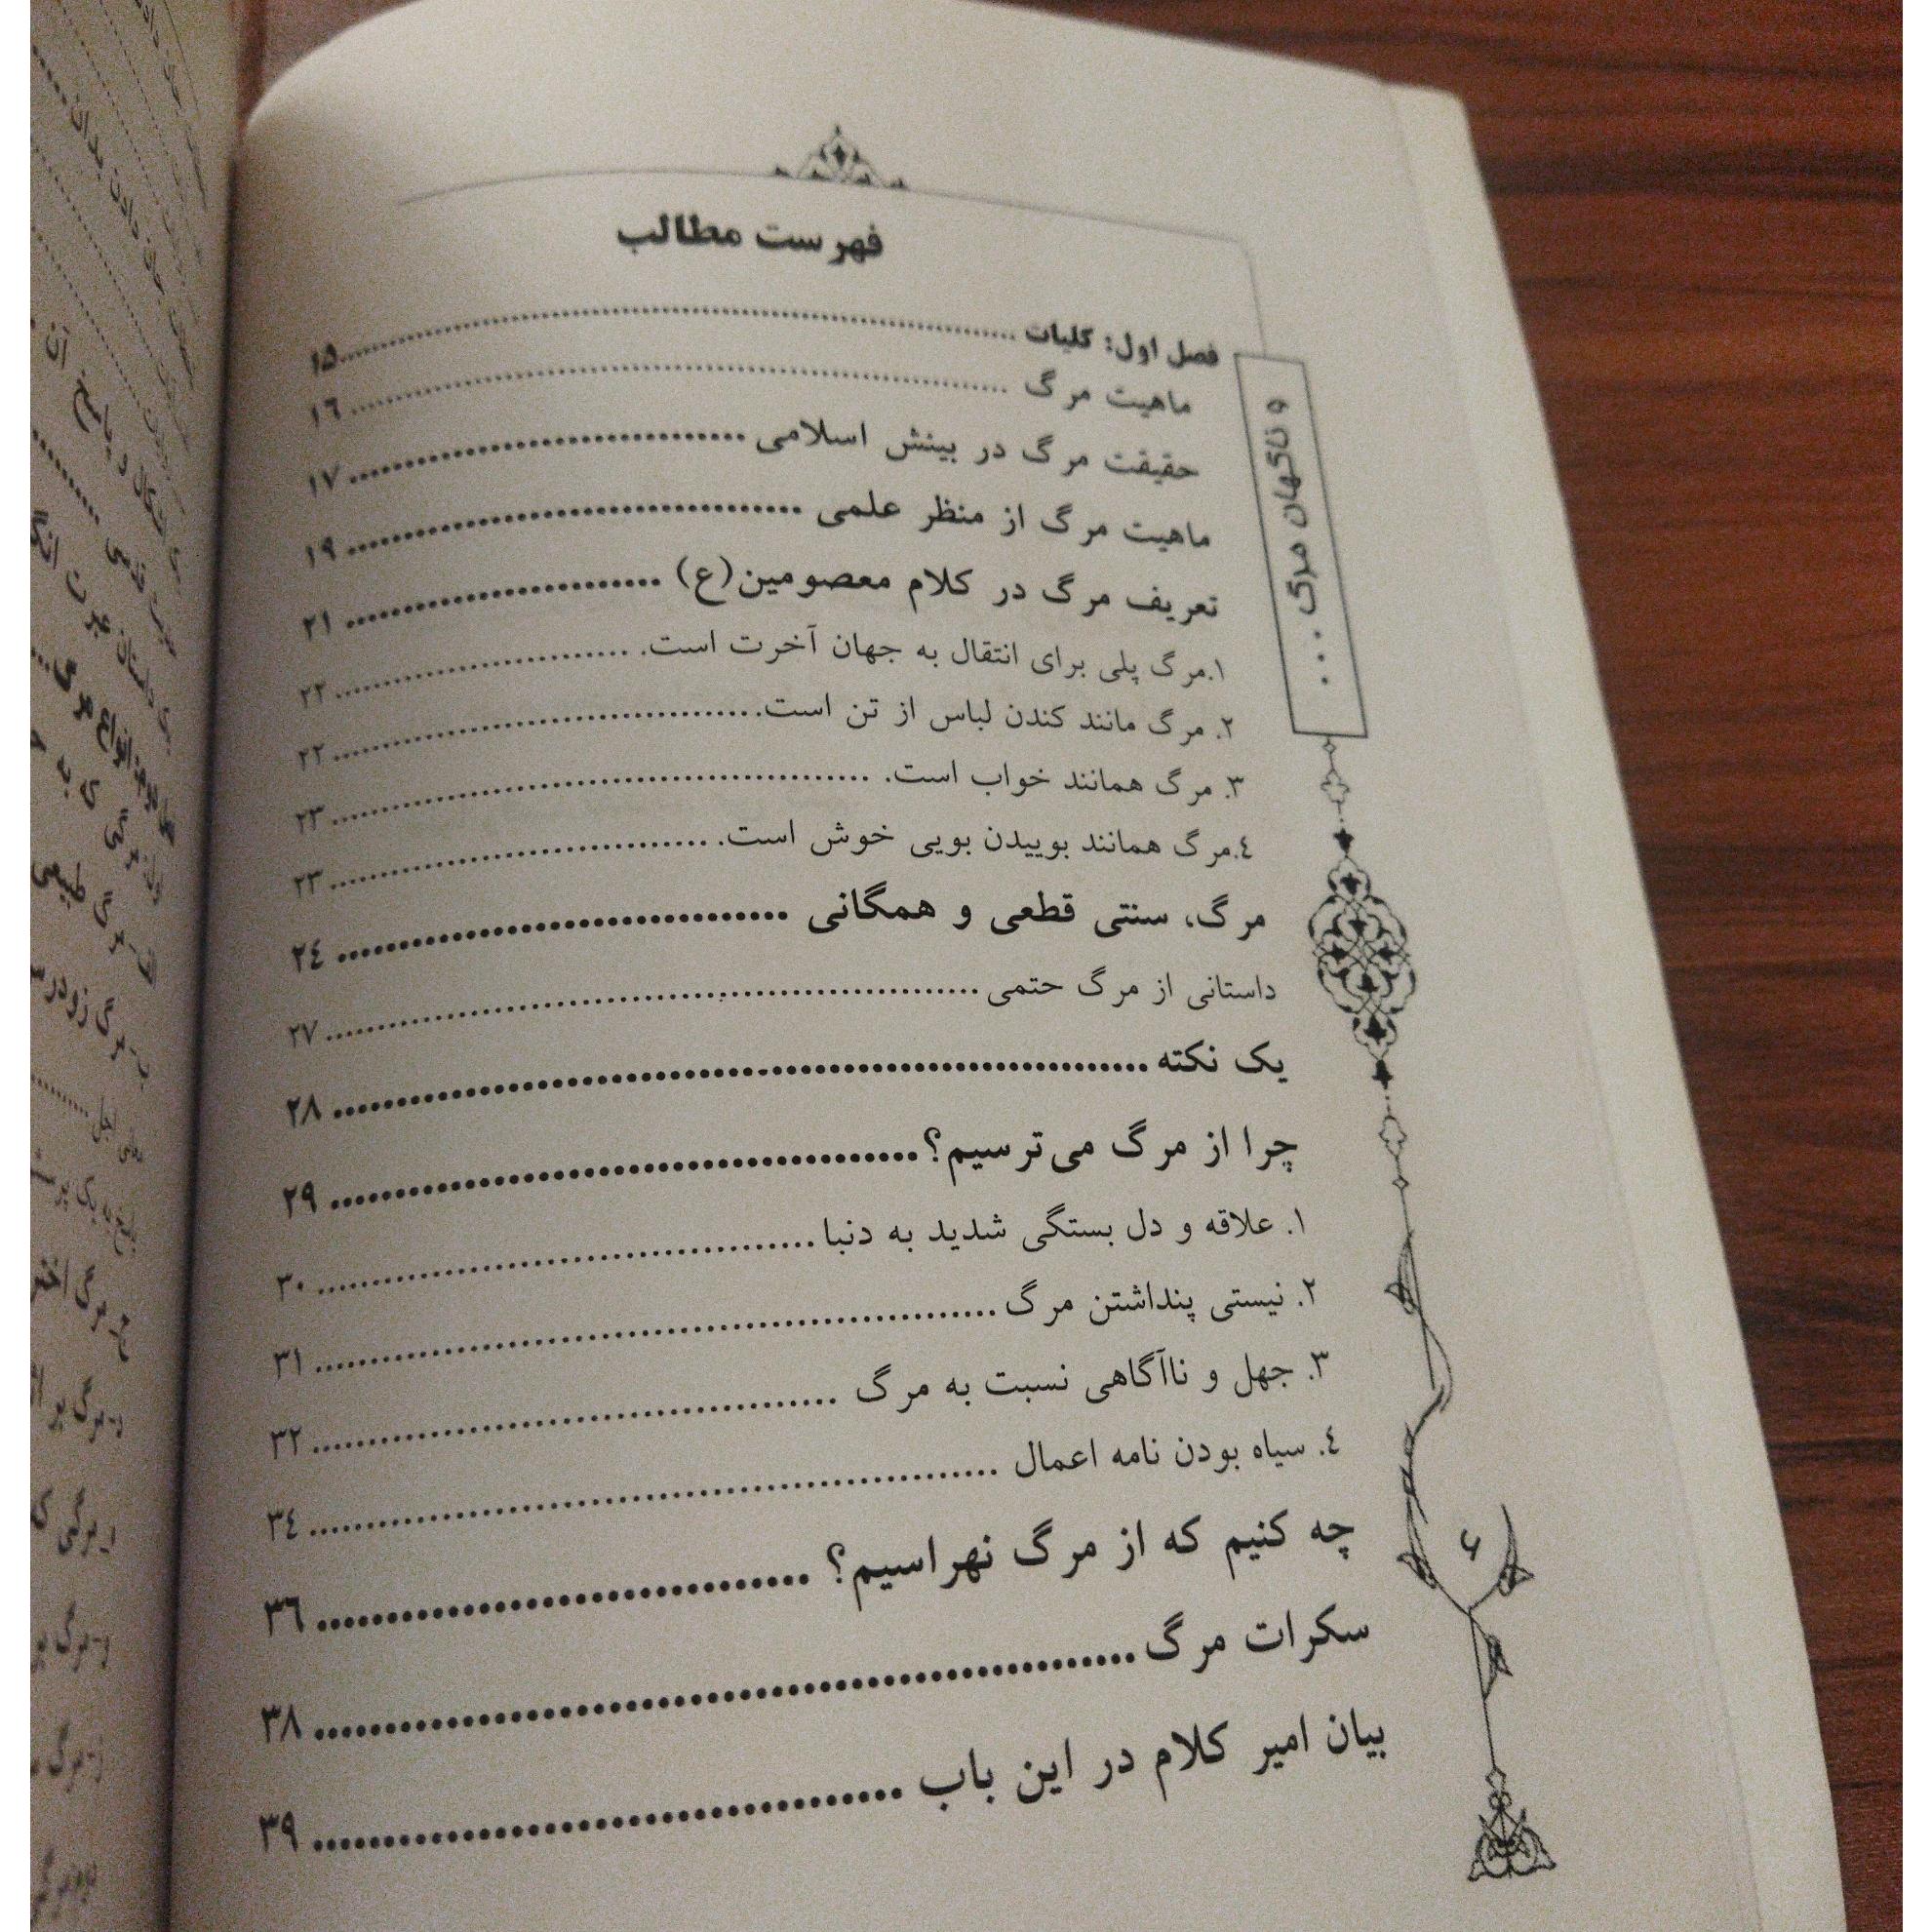 فهرست مطالب
فصل اول: کلیات ........ ۱۵
ماهیت مرگ ........ ۱٦
حقیقت مرگ در بینش اسلامی ........ ۱۷
ماهیت مرگ از منظر علمی ........ ۱۹
تعریف مرگ در کلام معصومین(ع) ........ ۲۱
۱.مرگ پلی برای انتقال به جهان آخرت است. ........ ۲۲
۲. مرگ مانند کندن لباس از تن است. ........ ۲۲
۳. مرگ همانند خواب است. ........ ۲۳
٤.مرگ همانند بوییدن بویی خوش است. ........ ۲۳
مرگ، سنتی قطعی و همگانی ........ ۲٤
داستانی از مرگ حتمی ........ ۲۷
یک نکته ........ ۲۸
چرا از مرگ می‌ترسیم؟ ........ ۲۹
۱. علاقه و دل بستگی شدید به دنیا ........ ۳۰
۲. نیستی پنداشتن مرگ ........ ۳۱
۳. جهل و ناآگاهی نسبت به مرگ ........ ۳۲
٤. سیاه بودن نامه اعمال ........ ۳٤
چه کنیم که از مرگ نهراسیم؟ ........ ۳٦
سکرات مرگ ........ ۳۸
بیان امیر کلام در این باب ........ ۳۹
و ناگهان مرگ ...
۶